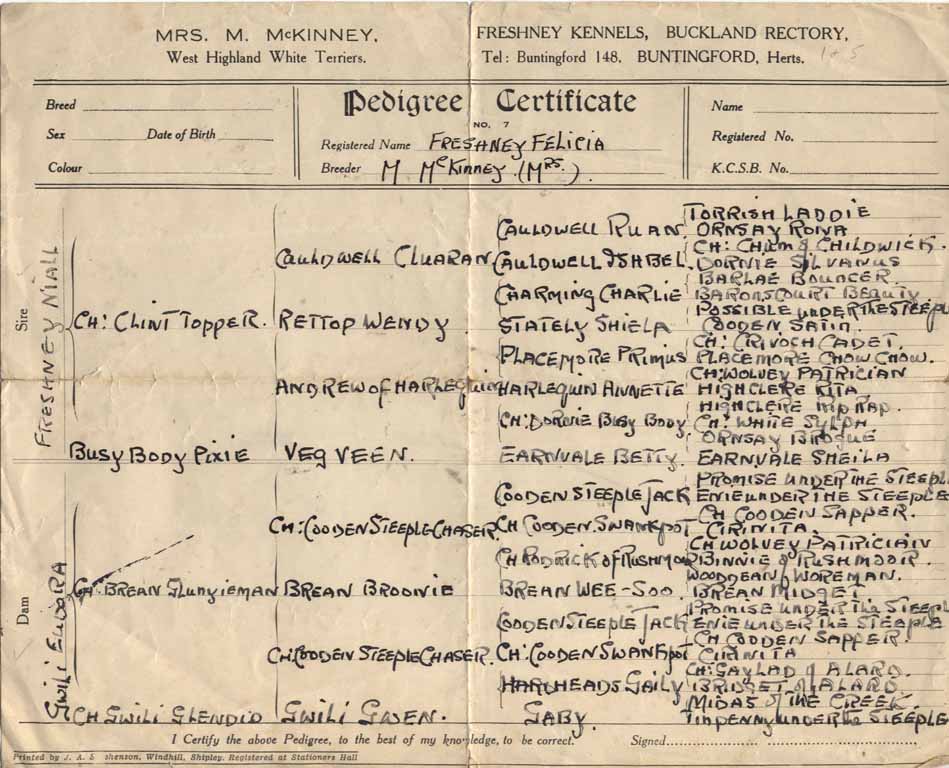 MRS. M. McKINNEY,
West Highland White Terriers.
FRESHNEY KENNELS, BUCKLAND RECTORY,
Tel: Buntingford 148. BUNTINGFORD, Herts.
Breed
Sex Date of Birth
Colour
Pedigree Certificate
NO. 7
Registered Name FRESHNEY FELICIA
Breeder M McKinney (MRS.)
Name
Registered No.
K.C.S.B. No.
Sire
FRESHNEY NIALL
CH: CLINT TOPPER.
BUSY BODY PIXIE
CAULDWELL CLUARAN
RETTOP WENDY
ANDREW OF HARLEQUIN
VEG VEEN.
CAULDWELL RUAN
CAULDWELL ISHBEL
CHARMING CHARLIE
STATELY SHIELA
PLACEMORE PRIMUS
HARLEQUIN ANNETTE
CH: DORNIE BUSY BODY
EARNVALE BETTY.
TORRISH LADDIE
ORNSAY RONA
CH: CHUM of CHILDWICK.
DORNIE SILVANUS
BARLAE BOUNCER.
BARONSCOURT BEAUTY
POSSIBLE UNDER THE STEEPL
COODEN SATIN.
CH: CRIVOCH CADET.
PLACEMORE CHOW CHOW.
CH: WOLVEY PATRICIAN
HIGHCLERE RITA
HIGHCLERE RIP RAP.
CH: WHITE SYLPH
ORNSAY BROGUE
EARNVALE SHEILA
Dam
GWILI EUDORA
CH. BREAN GLUNYIEMAN
CH GWILI GLENDID
CH: COODEN STEEPLECHASER
BREAN BROONIE
CH: COODEN STEEPLECHASER.
GWILI GWEN.
COODEN STEEPLE JACK
CH COODEN SWANKPOT
CH RODRICK of RUSHMOOR
BREAN WEE-SOO.
COODEN STEEPLE JACK
CH: COODEN SWANKPOT
HARCHEADS GAILY
GABY.
PROMISE UNDER THE STEEPL
ENIE UNDER THE STEEPLE
CH COODEN SAPPER.
CIRINITA.
CH WOLVEY PATRICIAN
BINNIE of RUSHMOOR.
WOODDEAN WOREMAN.
BREAN MIDGET
PROMISE UNDER the STEEPL
ENIE UNDER THE STEEPLE
CH COODEN SAPPER.
CIRINITA
CH: GAYLAD of ALARD
BRIDGET of ALARD
MIDAS of the CREEK.
TINPENNY UNDER the STEEPLE
I Certify the above Pedigree, to the best of my knowledge, to be correct. Signed
Printed by J. A. S henson, Windhill, Shipley. Registered at Stationers Hall